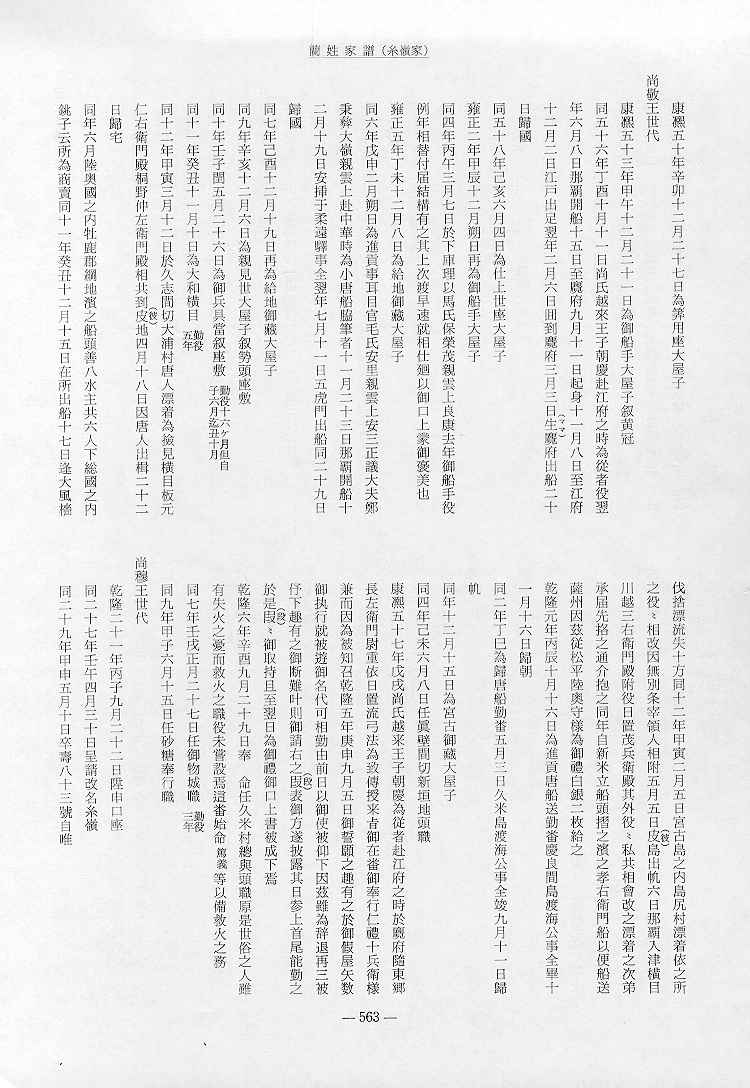 蘭姓家譜(糸嶺家)
康熙五十年辛卯十二月二十七日為筭用座大屋子
尚敬王世代
康熙五十三年甲午十二月二十一日為御船手大屋子叙黄冠
同五十六年丁酉十月十一日尚氏越来王子朝慶赴江府之時為従者役翌
年六月八日那覇開船十五日至麑府九月十一日起身十一月八日至江府
十二月二日江戸出足翌年二月六日囬到麑府三月三日生(ママ)麑府出船二十
日歸國
同五十八年己亥六月四日為仕上世座大屋子
雍正二年甲辰十二月朔日再為御船手大屋子
同四年丙午三月七日於下庫理以馬氏保榮茂親雲上良康去年御船手役
例年相替付届結構有之其上次渡早速就相仕廻以御口上蒙御褒美也
雍正五年丁未十二月八日為給地御藏大屋子
同六年戊申二月朔日為進貢事耳目官毛氏安里親雲上安三正議大夫鄭
秉彜大嶺親雲上赴中華時為小唐船脇筆者十一月二十三日那覇開船十
二月十九日安挿于柔遠驛事全翌年七月十一日五虎門出船同二十九日
歸國
同七年己酉十二月十九日再為給地御藏大屋子
同九年辛亥十二月六日為親見世大屋子叙勢頭座敷
同十年壬子閏五月二十六日為御兵具當叙座敷 勤役十六ヶ月但自子六月迄丑十月
同十一年癸丑十一月十日為大和横目 勤役五年
同十二年甲寅三月十二日於久志間切大浦村唐人漂着為撿見横目板元
仁右衛門殿桐野仲左衛門殿相共到皮(彼)地四月十八日因唐人出楫二十二
日歸宅
同年六月陸奥國之内牡鹿郡綱地濱之船頭善八水主共六人下総國之内
銚子云所為商賣同十一年癸丑十二月十五日在所出船十七日逢大風檣
伐捨漂流失十方同十二年甲寅二月五日宮古島之内島尻村漂着依之所
之役々相改因無別条宰領人相附五月五日皮(彼)島出帆六日那覇入津横目
川越三右衛門殿附役日置茂兵衛殿其外役々私共相會改之漂着之次弟
承届先挌之通介抱之同年自新米立船頭摺之濱之孝右衛門船以便船送
薩州因茲従松平陸奥守様為御禮白銀二枚給之
乾隆元年丙辰十月十六日為進貢唐船送勤番慶良間島渡海公事全畢十
一月十六日歸朝
同二年丁巳為歸唐船勤番五月三日久米島渡海公事全竣九月十一日歸
帆
同年十二月十五日為宮古御藏大屋子
同四年己未六月八日任眞壁間切新垣地頭職
康熙五十七年戊戌尚氏越来王子朝慶為従者赴江府之時於麑府隨東郷
長左衛門尉重依日置流弓法為致傳授来肯御在番御奉行仁禮十兵衛様
兼而因為被知召乾隆五年庚申九月五日御誓願之趣有之於御假屋矢数
御执行就被遊御名代可相勤由前日以御使被仰下因茲雖為辞退再三被
仔下趣有之御断難叶則御請右之叚(段)表御方遂披露其日参上首尾能勤之
於是叚(段)々御取持且至翌日為御禮御口上書被成下焉
乾隆六年辛酉九月二十九日奉 命任久米村總與頭職原是世俗之人雖
有失火之憂而救火之職役未嘗設焉這番始命 篤義 等以備救火之務
同七年壬戌正月二十七日任御物城職 勤役三年
同九年甲子六月十五日任砂糖奉行職
尚穆王世代
乾隆二十一年丙子九月二十二日陞申口座
同二十七年壬午四月三十日呈請改名糸嶺
同二十九年甲申五月十日卒壽八十三號自唯
— 563 —